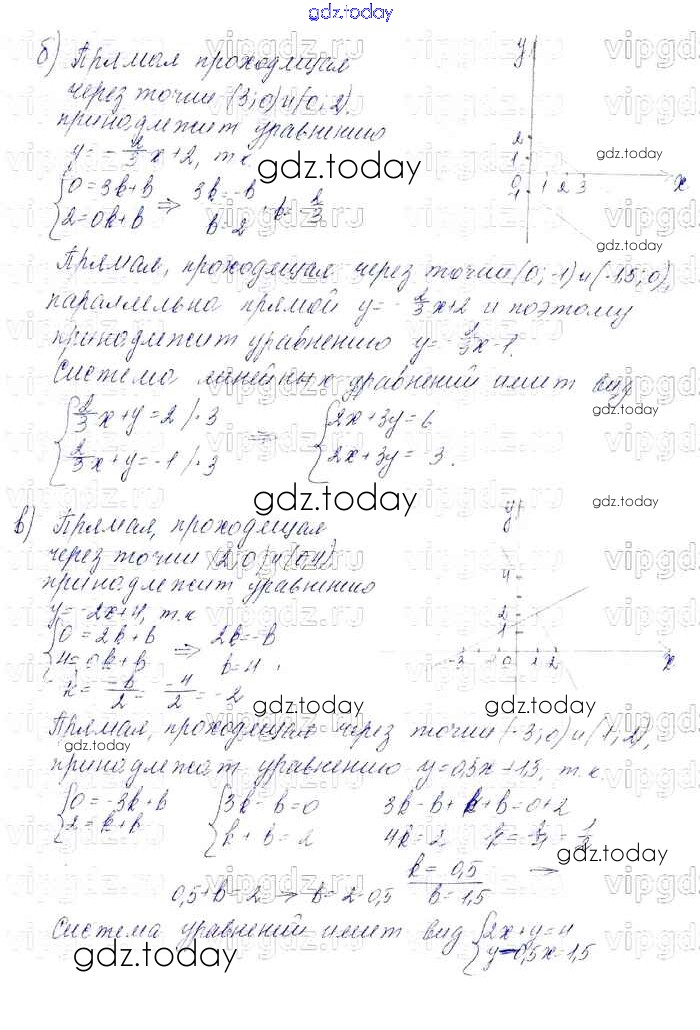 gdz.today
б) Прямая проходящая
через точки (3; 0) и (0; 2),
принадлежит уравнению
y = -2/3 x + 2, т.к.
{0 = 3k + b ⇒ 3k = -b
{2 = 0k + b b = 2 k = -2/3
y
2
1
0
1 2 3
x
gdz.today
gdz.today
gdz.today
Прямая, проходящая через точки (0; -1) и (-1,5; 0),
параллельна прямой y = -2/3 x + 2 и поэтому
принадлежит уравнению y = -2/3 x - 1.
Система линейных уравнений имеет вид
{2/3 x + y = 2 /·3 ⇒ {2x + 3y = 6
{2/3 x + y = -1 /·3 {2x + 3y = -3.
gdz.today
gdz.today
в) Прямая, проходящая
через точки (2; 0) и (0; 4)
принадлежит уравнению
y = -2x + 4, т.к
{0 = 2k + b ⇒ 2k = -b
{4 = 0k + b b = 4
k = -b/2 = -4/2 = -2
y
4
2
1
-3 -1 0 1 2
x
gdz.today
gdz.today
Прямая, проходящая через точки (-3; 0) и (1; 2),
gdz.today
принадлежат уравнению y = 0,5x + 1,5, т.к.
{0 = -3k + b {3k - b = 0 3k - b + k + b = 0 + 2
{2 = k + b {k + b = 2 4k = 2 k = 2/4 = 1/2
gdz.today
k = 0,5
0,5 + b = 2 ⇒ b = 2 - 0,5 b = 1,5
Система уравнений имеет вид {2x + y = 4
{y - 0,5x = 1,5
gdz.today
gdz.today
vipgdz.ru